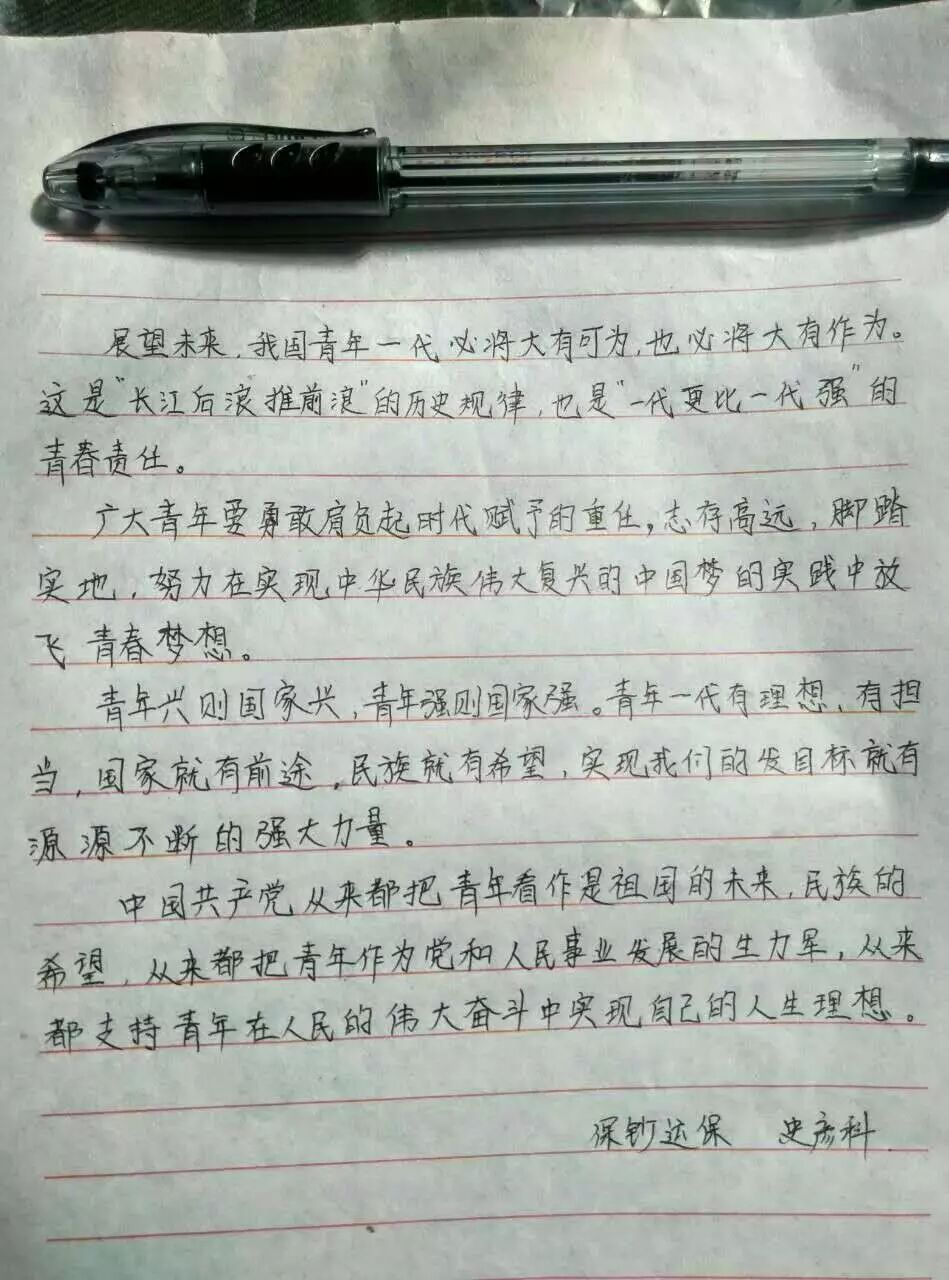 展望未来,我国青年一代必将大有可为,也必将大有作为。
这是“长江后浪推前浪”的历史规律,也是“一代更比一代强”的
青春责任。
广大青年要勇敢肩负起时代赋予的重任,志存高远,脚踏
实地,努力在实现中华民族伟大复兴的中国梦的实践中放
飞青春梦想。
青年兴则国家兴,青年强则国家强。青年一代有理想、有担
当,国家就有前途,民族就有希望,实现我们的发目标就有
源源不断的强大力量。
中国共产党从来都把青年看作是祖国的未来,民族的
希望,从来都把青年作为党和人民事业发展的生力军,从来
都支持青年在人民的伟大奋斗中实现自己的人生理想。
保钞达保 史彦科